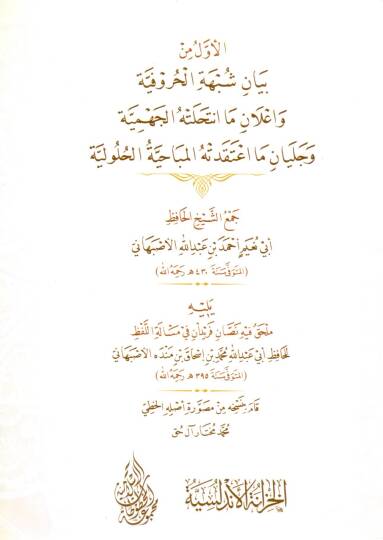 الأوّل من
بيان شبهة الحروفيّة
وإعلان ما انتحلته الجهميّة
وجليان ما اعتقدته المباحيّة الحلوليّة
جمع الشّيخ الحافظ
أبي نعيم أحمد بن عبد الله الأصبهاني
(المتوفى سنة ٤٣٠ هـ رحمه الله)
يليه
ملحق فيه نصّان فريدان في مسألة اللّفظ
للحافظ أبي عبد الله محمّد بن إسحاق بن منده الأصبهاني
(المتوفى سنة ٣٩٥ هـ رحمه الله)
قام بنسخه من مصوّرة أصله الخطّي
محمّد مختار آل حق
الخزانة الأندلسيّة